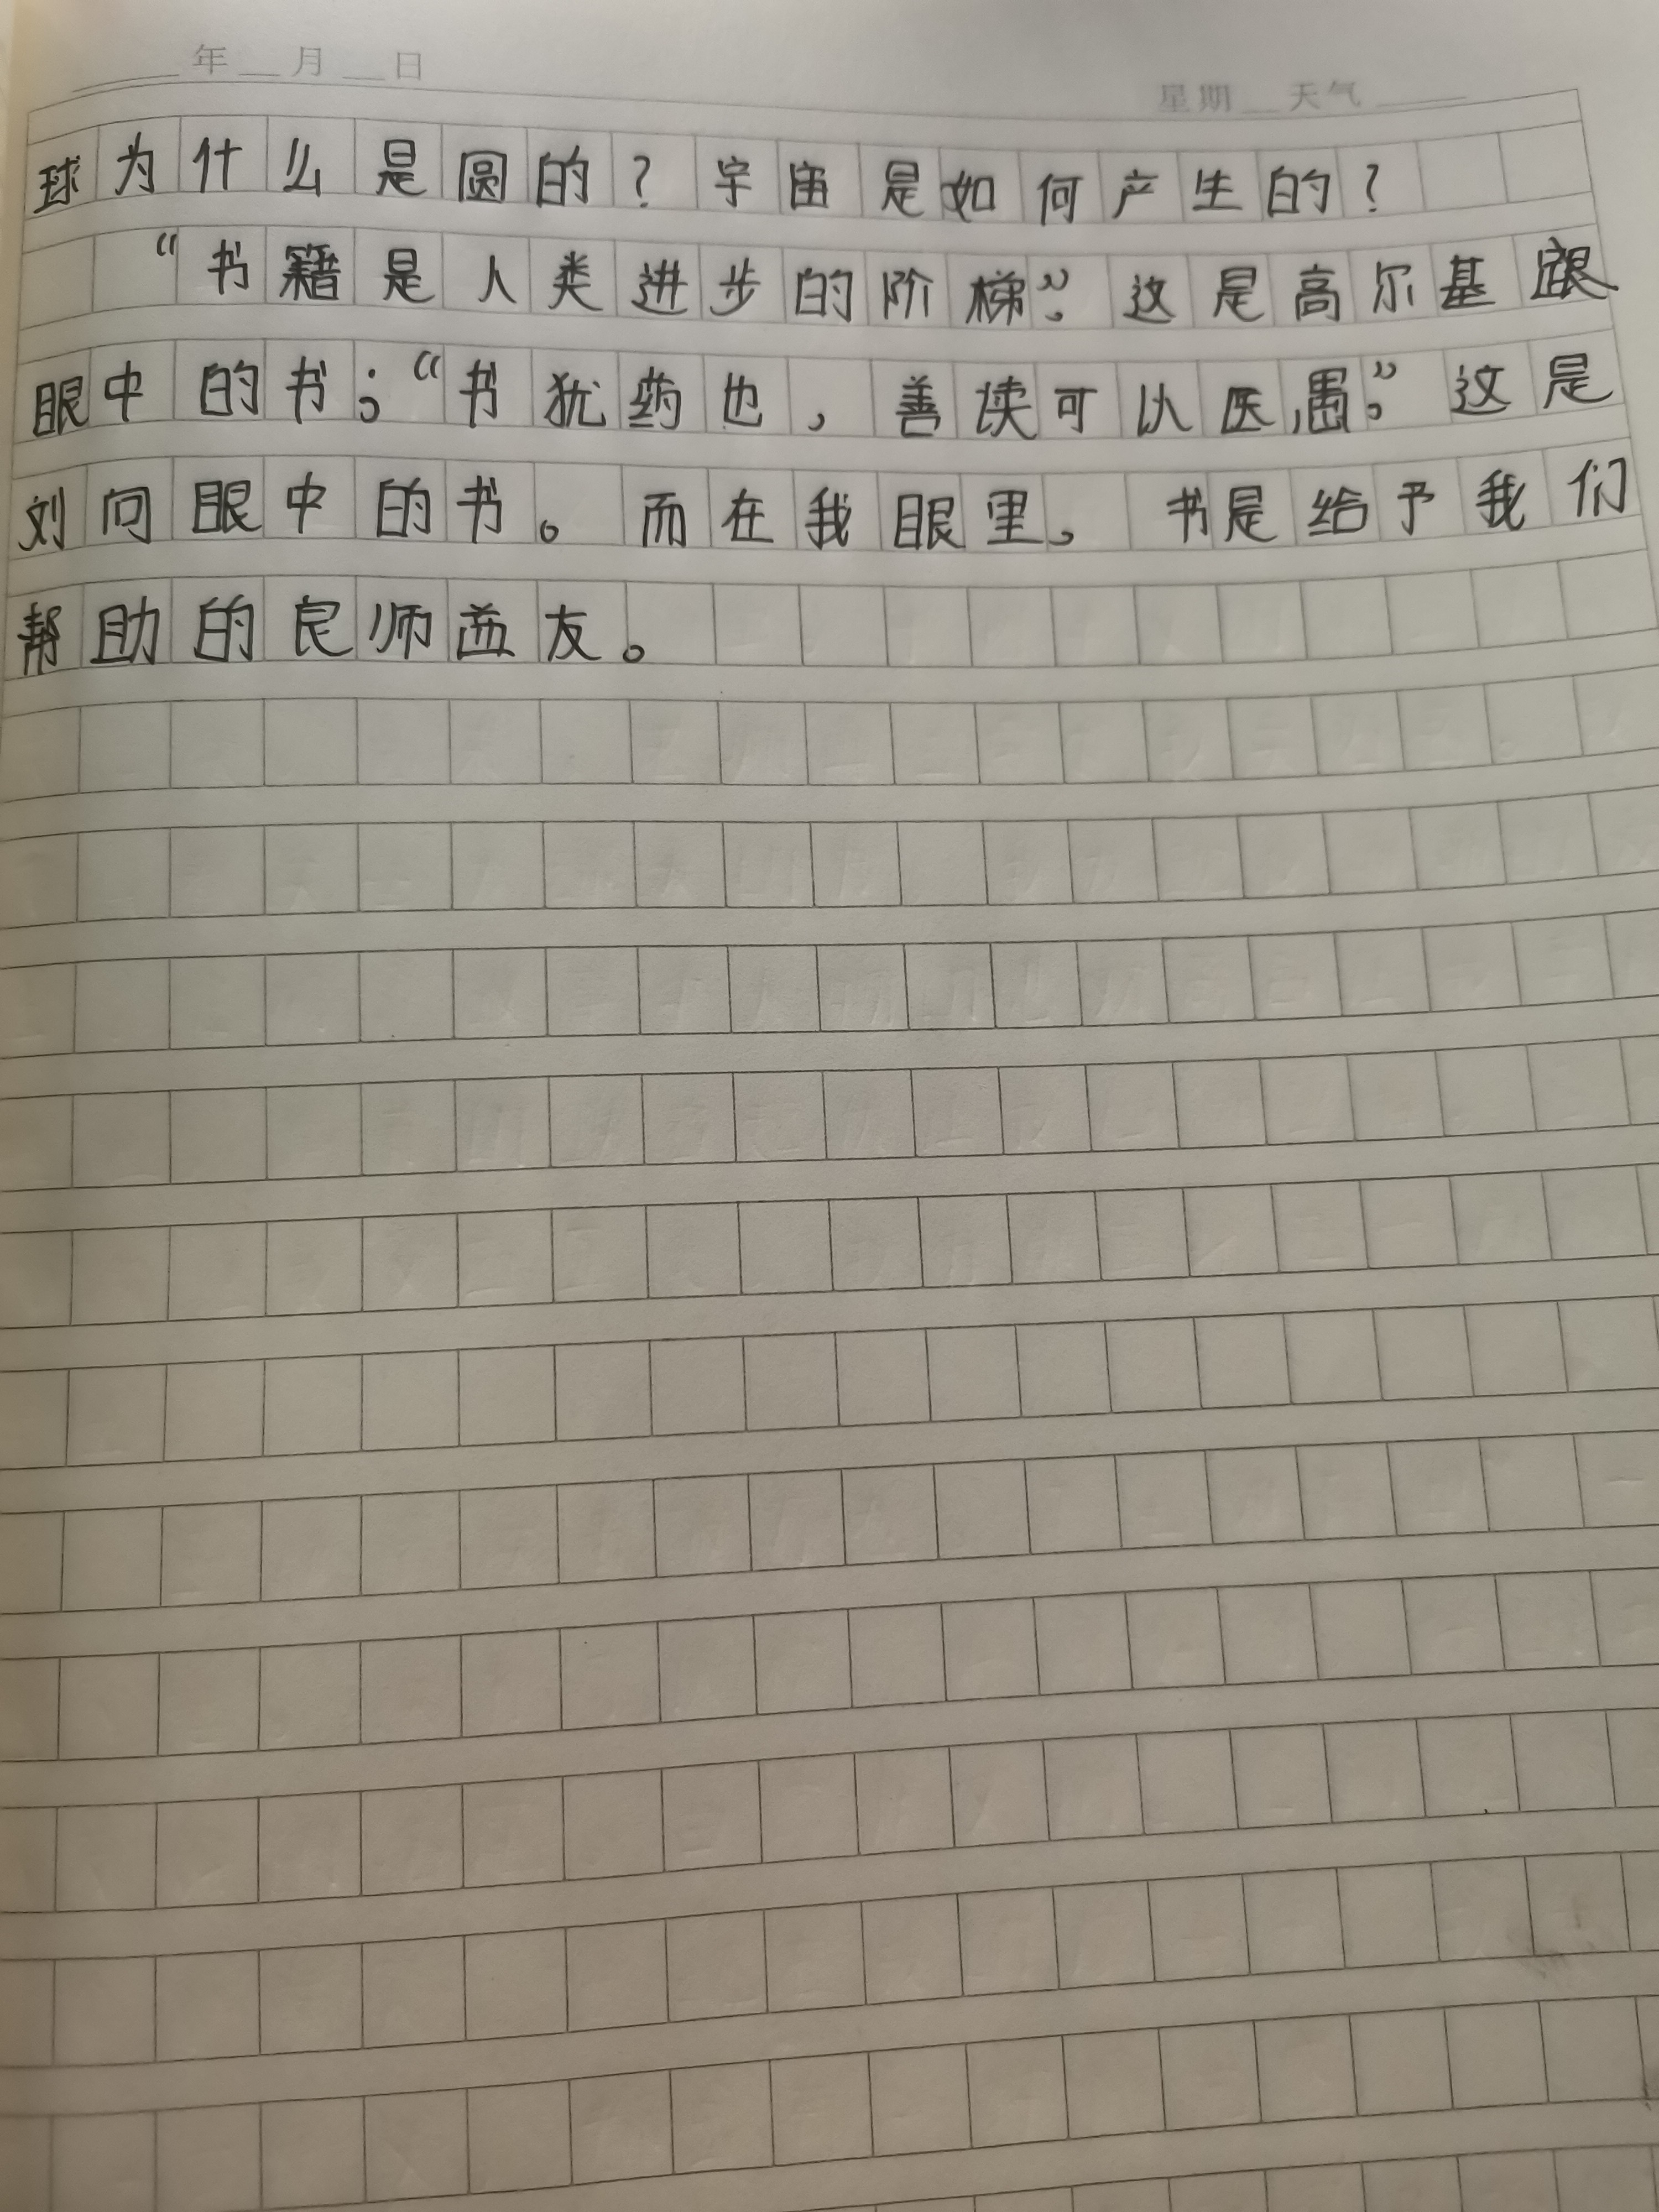 年 月 日
星期 天气
球为什么是圆的？宇宙是如何产生的？
“书籍是人类进步的阶梯”。这是高尔基跟
眼中的书；“书犹药也，善读可以医愚”。这是
刘向眼中的书。而在我眼里，书是给予我们
帮助的良师益友。